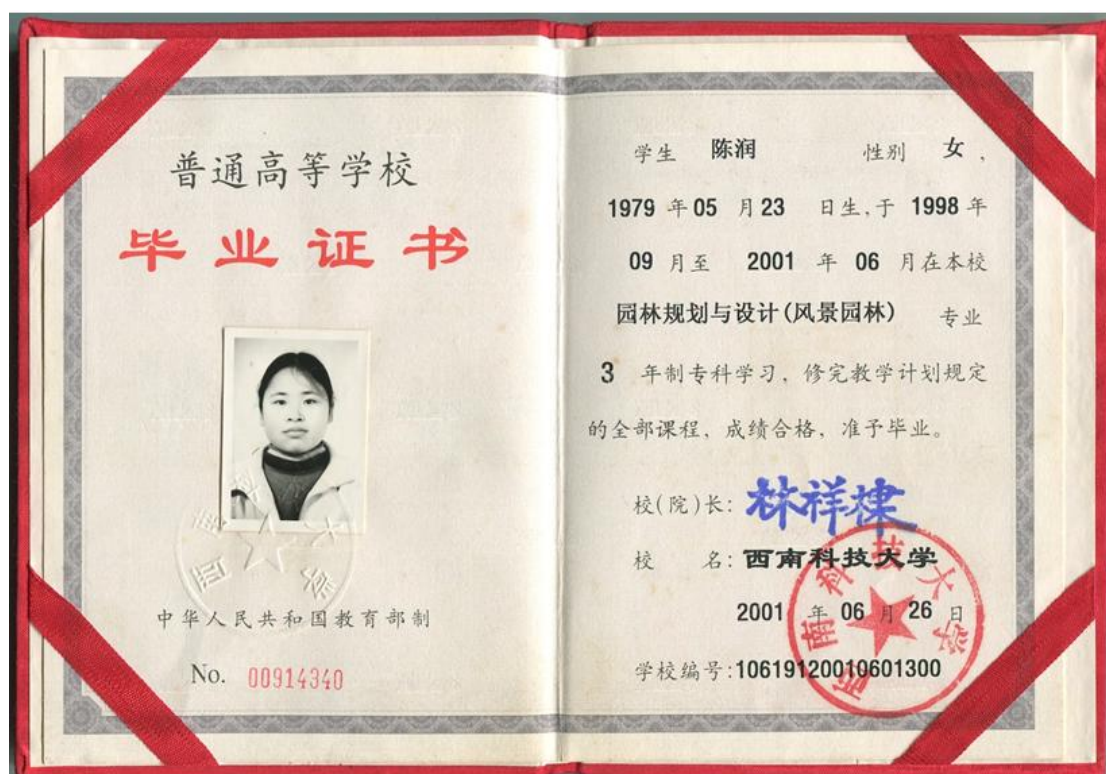 普通高等学校
毕业证书
中华人民共和国教育部制
No. 00914340
学生 陈润 性别 女,
1979 年 05 月 23 日生,于 1998 年
09 月至 2001 年 06 月在本校
园林规划与设计(风景园林) 专业
3 年制专科学习, 修完教学计划规定
的全部课程, 成绩合格, 准予毕业。
校(院)长: 林祥棣
校 名: 西南科技大学
2001 年 06 月 26 日
学校编号:10619120010601300
西南科技大学
西南科技大学